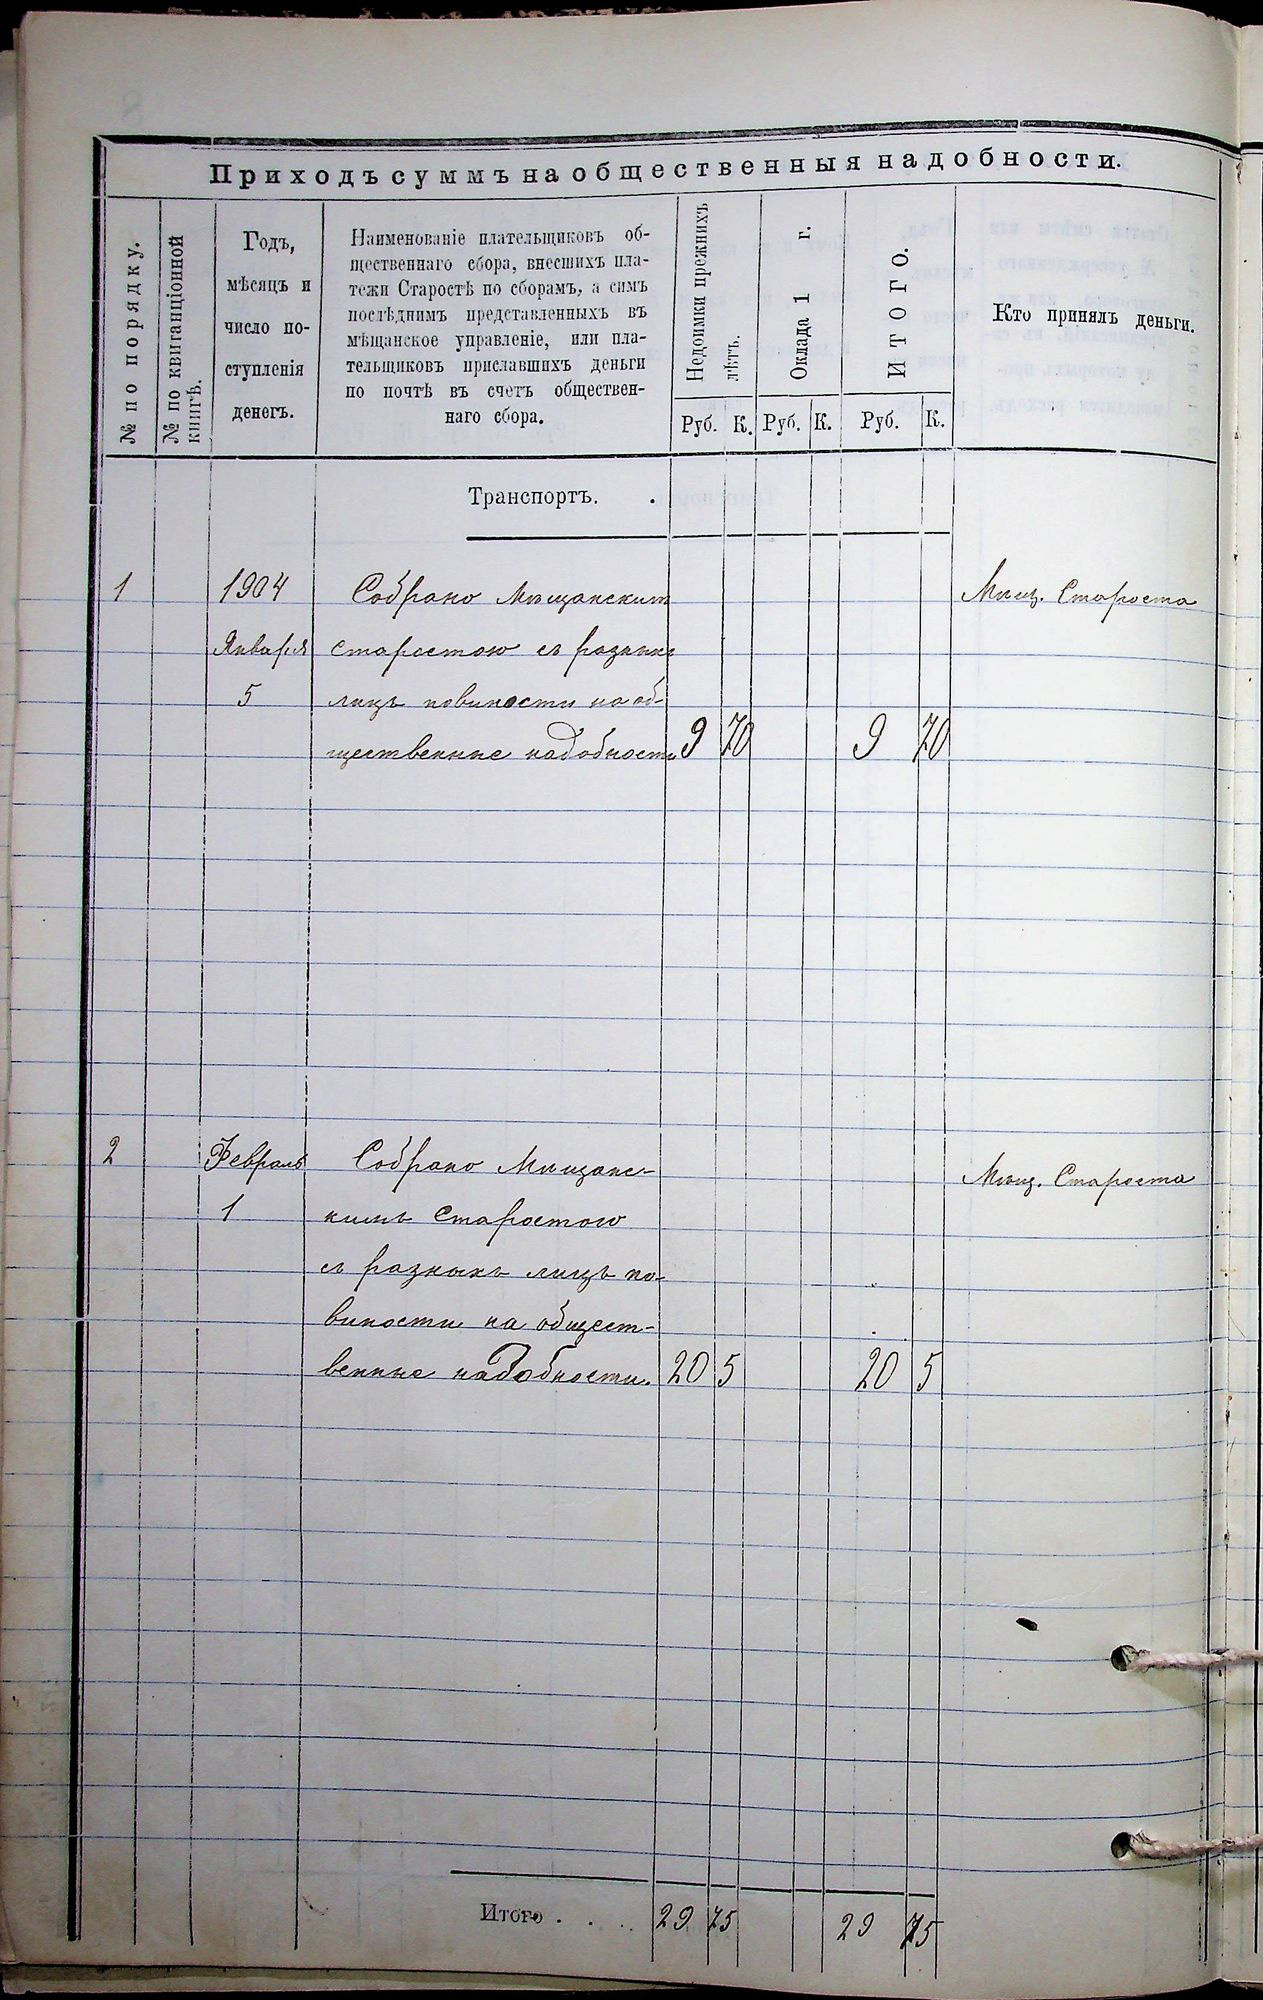 Приходъ суммъ на общественныя надобности.
№ по порядку.
№ по квитанціонной
книгѣ.
Годъ,
мѣсяцъ и
число по-
ступленія
денегъ.
Наименованіе плательщиковъ об-
щественнаго сбора, внесшихъ пла-
тежи Старостѣ по сборамъ, а симъ
послѣднимъ представленныхъ въ
мѣщанское управленіе, или пла-
тельщиковъ приславшихъ деньги
по почтѣ въ счетъ обществен-
наго сбора.
Недоимки прежнихъ
лѣтъ.
Оклада 1 г.
Итого.
Кто принялъ деньги.
Руб. К. Руб. К. Руб. К.
Транспортъ. .
1 1904 Собрано Мѣщанскимъ Мѣщ. Староста
Января старостою съ разныхъ
5 лицъ повиности на об-
щественные надобности 9 70 9 70
2 Февраль Собрано Мѣщанс- Мѣщ. Староста
1 кимъ Старостою
съ разныхъ лицъ по-
виности на общест-
венные надобности. 20 5 20 5
Итого . . . 29 75 29 75